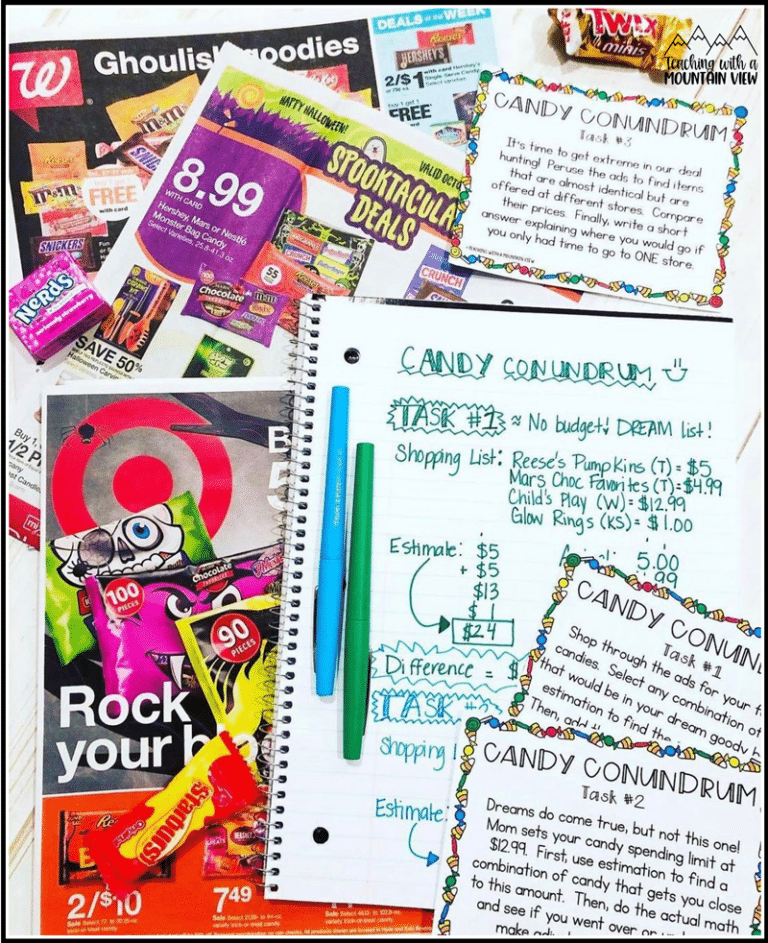 W
Ghoulish goodies
DEALS of the WEEK
Reese's
HERSHEY'S
2/$1
with card
FREE
TWIX
minis
Teaching with a
MOUNTAIN VIEW
HAPPY HALLOWEEN!
SPOOKTACULA
DEALS
VALID OCT
8.99
WITH CARD
Hershey, Mars or Nestlé
Monster Bag Candy
Select Varieties, 25.8-41.3 oz.
m&m's
FREE
with card
SNICKERS
55
CRUNCH
Chocolate
NERDS
SAVE 50%
Halloween Carvin
Buy 1,
CANDY CONUNDRUM
Task #3
It's time to get extreme in our deal
hunting! Peruse the ads to find items
that are almost identical but are
offered at different stores. Compare
their prices. Finally, write a short
answer explaining where you would go if
you only had time to go to ONE store.
CANDY CONUNDRUM
TASK #1 ≈ No budget! DREAM list!
Shopping List: Reese's Pumpkins (T) = $5
Mars Choc Favorites (T) = $4.99
Child's Play (W) = $12.99
Glow Rings (KS) = $1.00
Estimate: $5
+ $5
$13
$1
$24
5.00
.99
Difference = $
TASK
Shopping
Estimate:
B
5
Chocolate
100
PIECES
90
PIECES
Rock
your
Starburst
2/$10
7.49
CANDY CONUN
Task #1
Shop through the ads for your f
candies. Select any combination of
that would be in your dream goody b
estimation to find the
Then, add
CANDY CONUNDRUM
Task #2
Dreams do come true, but not this one!
Mom sets your candy spending limit at
$12.99. First, use estimation to find a
combination of candy that gets you close
to this amount. Then, do the actual math
and see if you went over or
make